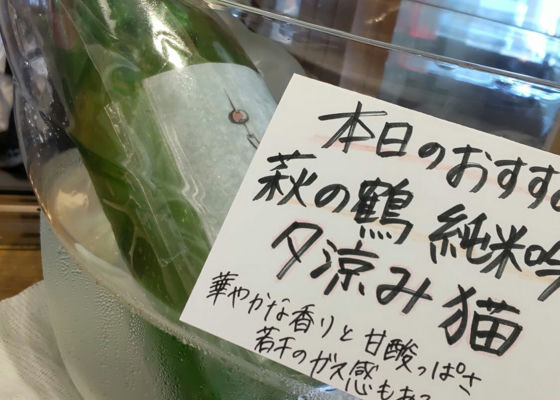 本日のおすす
萩の鶴 純米吟
夕涼み猫
華やかな香りと甘酸っぱさ
若干のガス感もあ